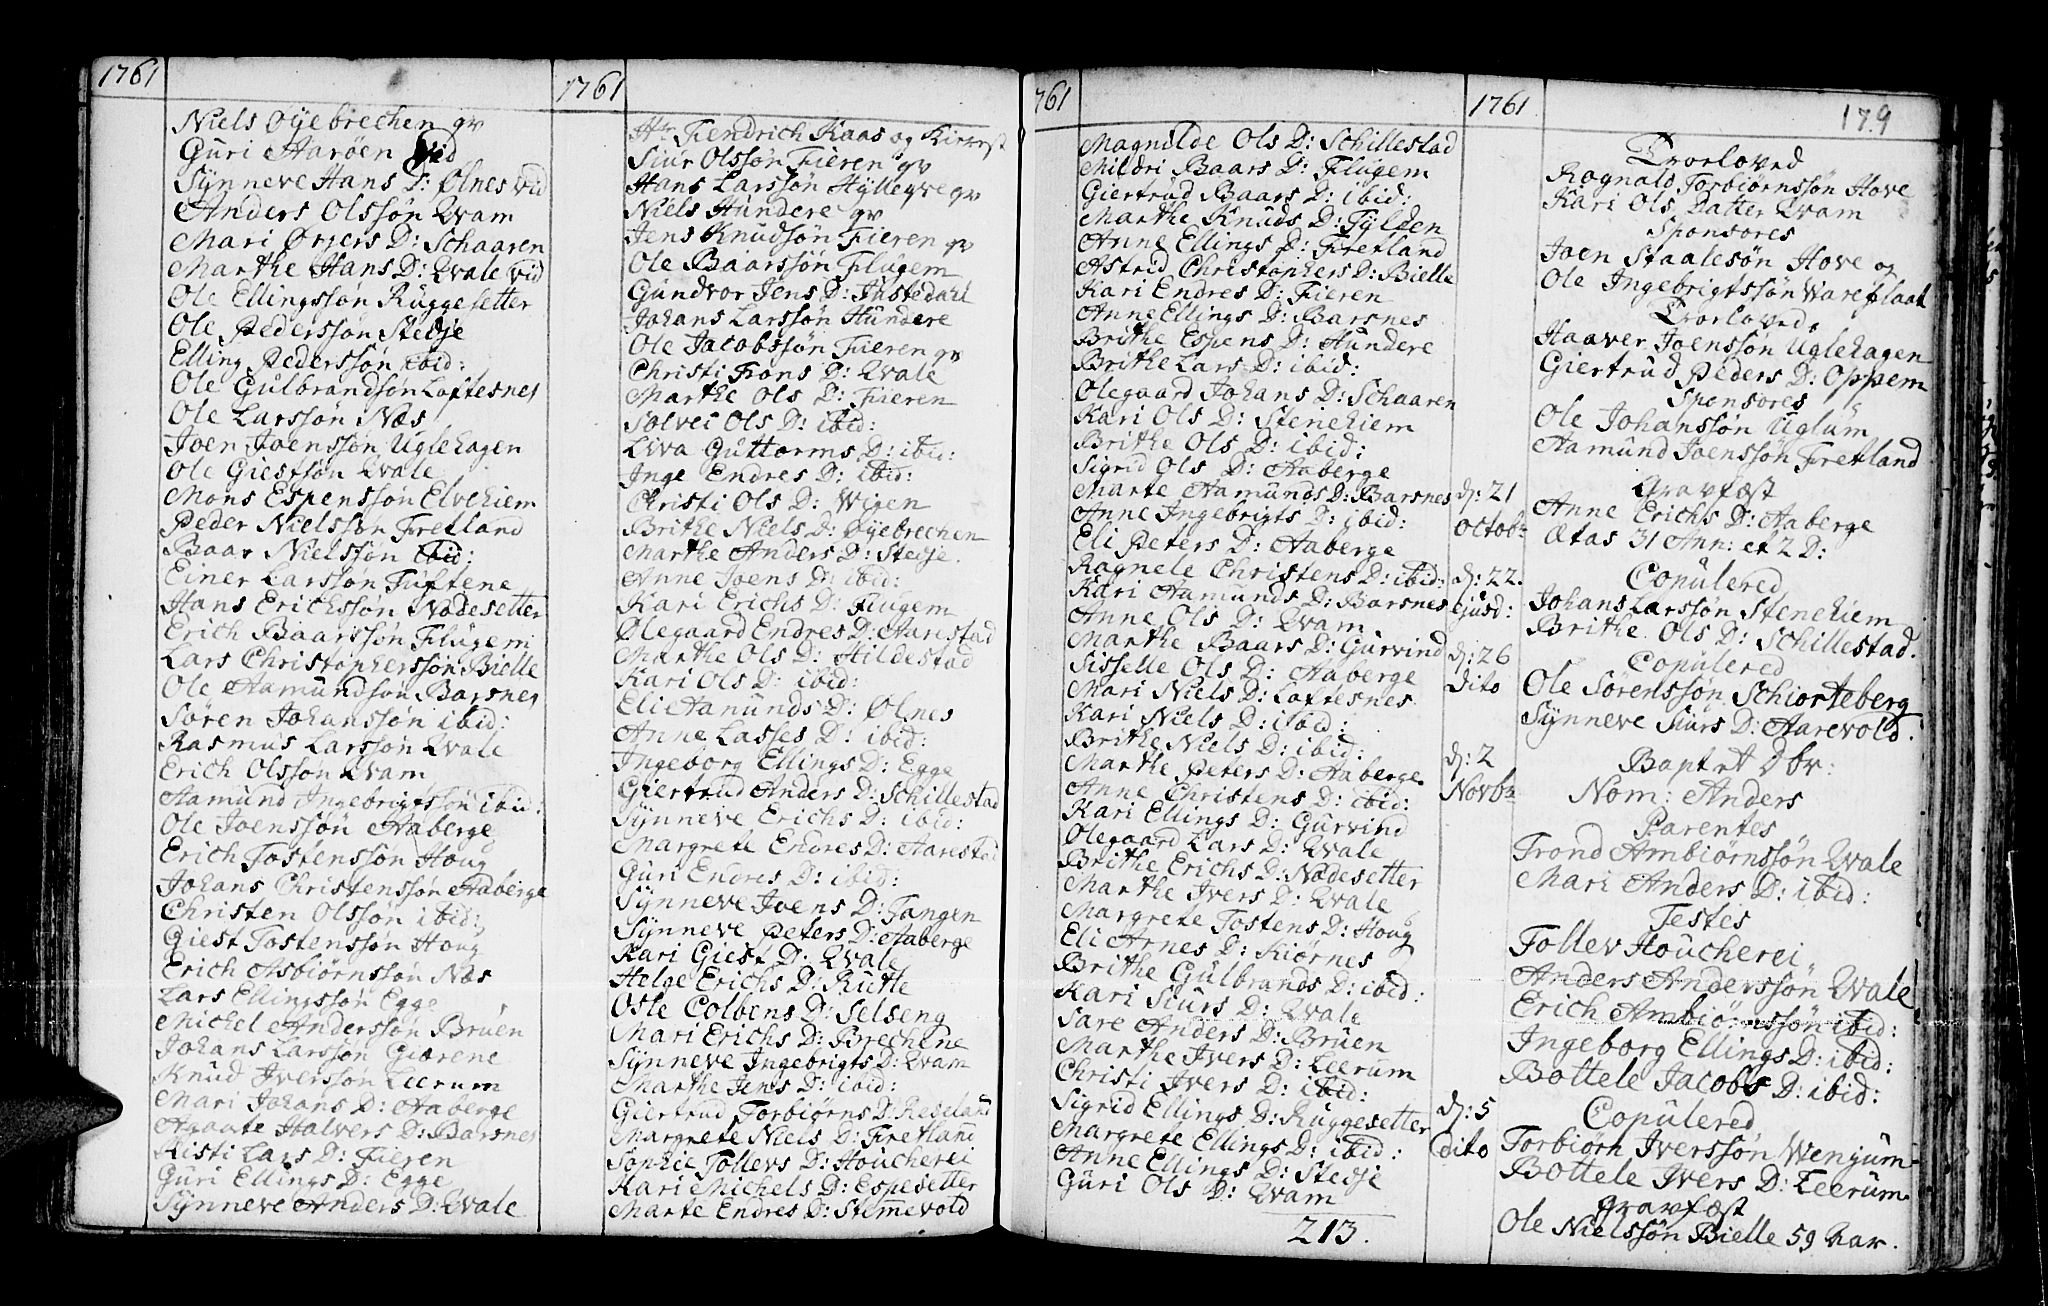 1761
Niels Øÿebrechen qv
Guri Aarøen vid
Sÿnneve Hans D: Ølnes vid
Anders Olssøn Qvam
Mari Ørjers D: Schaaren
Marthe Hans D: Qvale vid
Ole Ellingssøn Rüggesetter
Ole Pederssøn Stedje
Elling Pederssøn ibid:
Ole Gulbrandsøn Loftesnes
Ole Larssøn Næs
Joen Joenssøn Uglehagen
Ole Giestsøn Qvale
Mons Espenssøn Elvehiem
Peder Nielssøn Fretland
Baar Nielssøn ibid:
Einer Larssøn Tuftene
Hans Erichssøn Nødesetter
Erich Baarssøn Flügem
Lars Christopherssøn Bielle
Ole Aamundsøn Barsnes
Søren Johanssøn ibid:
Rasmus Larssøn Qvale
Erich Olssøn Qvam
Aamünd Ingebrigtssøn ibid:
Ole Joenssøn Aaberge
Erich Tostenssøn Houg
Johans Christenssøn Aaberge
Christen Olssøn ibid:
Giest Tostenssøn Houg
Erich Asbiørnssøn Næs
Lars Ellingssøn Egge
Michel Anderssøn Brüen
Johans Larssøn Giørene
Knud Iverssøn Leerum
Mari Johans D: Aaberge
Agaate Halvers D: Barsnes
Kisti Lars D: Fieren
Guri Ellings D: Egge
Sÿnneve Anders D: Qvale
1761
Hr Fiendrich Kaas og Kierrest
Siur Olssøn Fieren qv
Hans Larssøn Hÿllegve qv
Niels Hundere qv
Jens Knudsøn Fieren qv
Ole Baarssøn Flügem
Gundvor Jens D: Justedahl
Johans Larssøn Hundere
Ole Jacobssøn Fieren qv
Christi Frans D: Qvale
Marthe Ols D: Fieren
Solvei Ols D: ibid:
Liva Guttorms D: ibid:
Inge Endres D: ibid:
Christi Ols D: Wigen
Brithe Niels D: Øÿebrechen
Marthe Anders D: Stedje
Anne Joens D: ibid:
Kari Erichs D: Flugem
Ølegaard Endres D: Aarestad
Marthe Ols D: Hildestad
Kari Ols D: ibid:
Eli Aamünds D: Ølnes
Anne Lasses D: ibid:
Ingeborg Ellings D: Egge
Giertrud Anders D: Schillestad
Sÿnneve Erichs D: ibid:
Margrete Endres D: Aarestad
Guri Endres D: ibid:
Sÿnneve Joens D: Tangen
Sÿnneve Peters D: Aaberge
Kari Giest D: Qvale
Helge Erichs D: Rütle
Osle Colbens D: Selseng
Mari Erichs D: Brechene
Sÿnneve Ingebrigts D: Qvam
Marthe Jens D: ibid:
Giertrud Torbiørns D: Reseland
Margrete Niels D: Fretland
Sophie Tollevs D: Houcherei
Kari Michels D: Espesetter
Marte Endres D: Stemevold
761
Magnilde Ols D: Schillestad
Mildri Baars D: Flügem
Giertrud Baars D: ibid:
Marthe Knuds D: Fÿlden
Anne Ellings D: Fretland
Astrid Christophers D: Bielle
Kari Endres D: Fieren
Anne Ellings D: Barsnes
Brithe Espens D: Hundere
Brithe Lars D: ibid:
Olegaard Johans D: Schaaren
Kari Ols D: Stenehiem
Brithe Ols D: ibid:
Sigrid Ols D: Aaberge
Marte Aamunds D: Barsnes
Anne Ingebrigts D: ibid:
Eli Peters D: Aaberge
Ragnele Christens D: ibid:
Kari Aamunds D: Barsnes
Anne Ols D: Qvam
Marthe Baars D: Gurvind
Sisselle Ols D: Aaberge
Mari Niels D: Loftesnes
Kari Niels D: ibid:
Brithe Niels D: ibid:
Marthe Peters D: Aaberge
Anne Christens D: ibid:
Kari Ellings D: Gurvind
Olegaard Lars D: Qvale
Brithe Erichs D: Nødesetter
Marthe Ivers D: Qvale
Margrete Tostens D: Houg
Eli Arnes D: Kiørnes
Brithe Gulbrands D: ibid:
Kari Siurs D: Qvale
Sare Anders D: Brüen
Marthe Ivers D: Leerum
Christi Ivers D: ibid:
Sigrid Ellings D: Ruggesetter
Margrete Ellings D: ibid:
Anne Ellings D: Stedje
Güri Ols D: Qvam
213.
1761
179
Trorloved
Rognald Torbiørnssøn Hove
Kari Ols Datter Qvam
Sponsores
Joen Staalesøn Hove og
Ole Ingebrigtssøn Warøflaat
Trorloved
Haaver Joenssøn Uglehagen
Giertrud Peders D: Oppem
Sponsores
Ole Johanssøn Uglüm
Aamünd Joenssøn Fretland
d: 21 Octobr
Gravfæst
Anne Erichs D: Aaberge
Ætas 31 Ann: et 2 D:
d: 22. ejusd:
Copulered
Johans Larssøn Stenehiem
Brithe Ols D: Schillestad.
d: 26 dito
Copülered
Ole Sørenssøn Schiorteberg
Sÿnneve Siurs D: Aarevold.
d: 2 Novbr
Bapt et Dbr:
Nom: Anders
Parentes
Trond Ambiørnssøn Qvale
Mari Anders D: ibid:
Testes
Tollev Houcherei
Anders Anderssøn Qvale
Erich Ambiørnssøn ibid:
Ingeborg Ellings D: ibid:
Bottele Jacobs D: ibid:
d: 5 dito
Copülered
Torbiørn Iverssøn Wenjum
Bottele Ivers D: Leerum
Gravfæst
Ole Nielssøn Bielle 59 Aar.